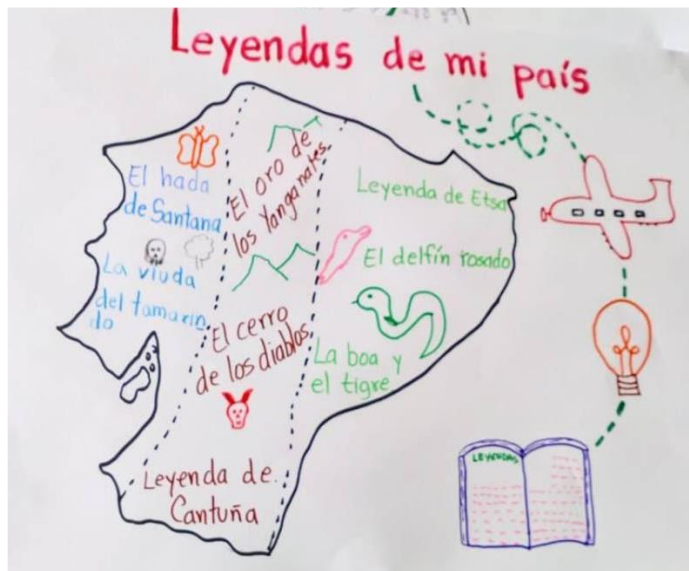 Leyendas de mi país
El hada
de Santana
La viuda
del tamarin
do
El oro de
los Yanganates
El cerro
de los diablos
Leyenda de
Cantuña
Leyenda de Etsa
El delfín rosado
La boa y
el tigre
LEYENDAS